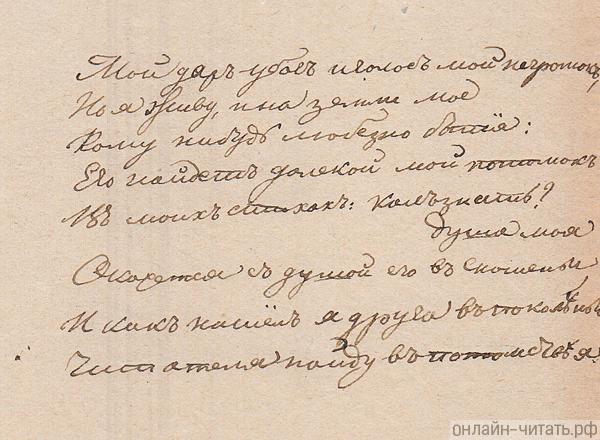 Мой даръ убогъ и голосъ мой негромокъ,
Но я живу, и на земле мое
Кому нибудь любезно бытiе:
Его найдетъ далекой мой потомокъ
Въ моихъ стихахъ: какъ знать?
душа моя
Окажется съ душой его въ сношеньи
И какъ нашелъ я друга въ поколѣньѣ
Читателя найду въ потомствѣ я.
онлайн-читать.рф